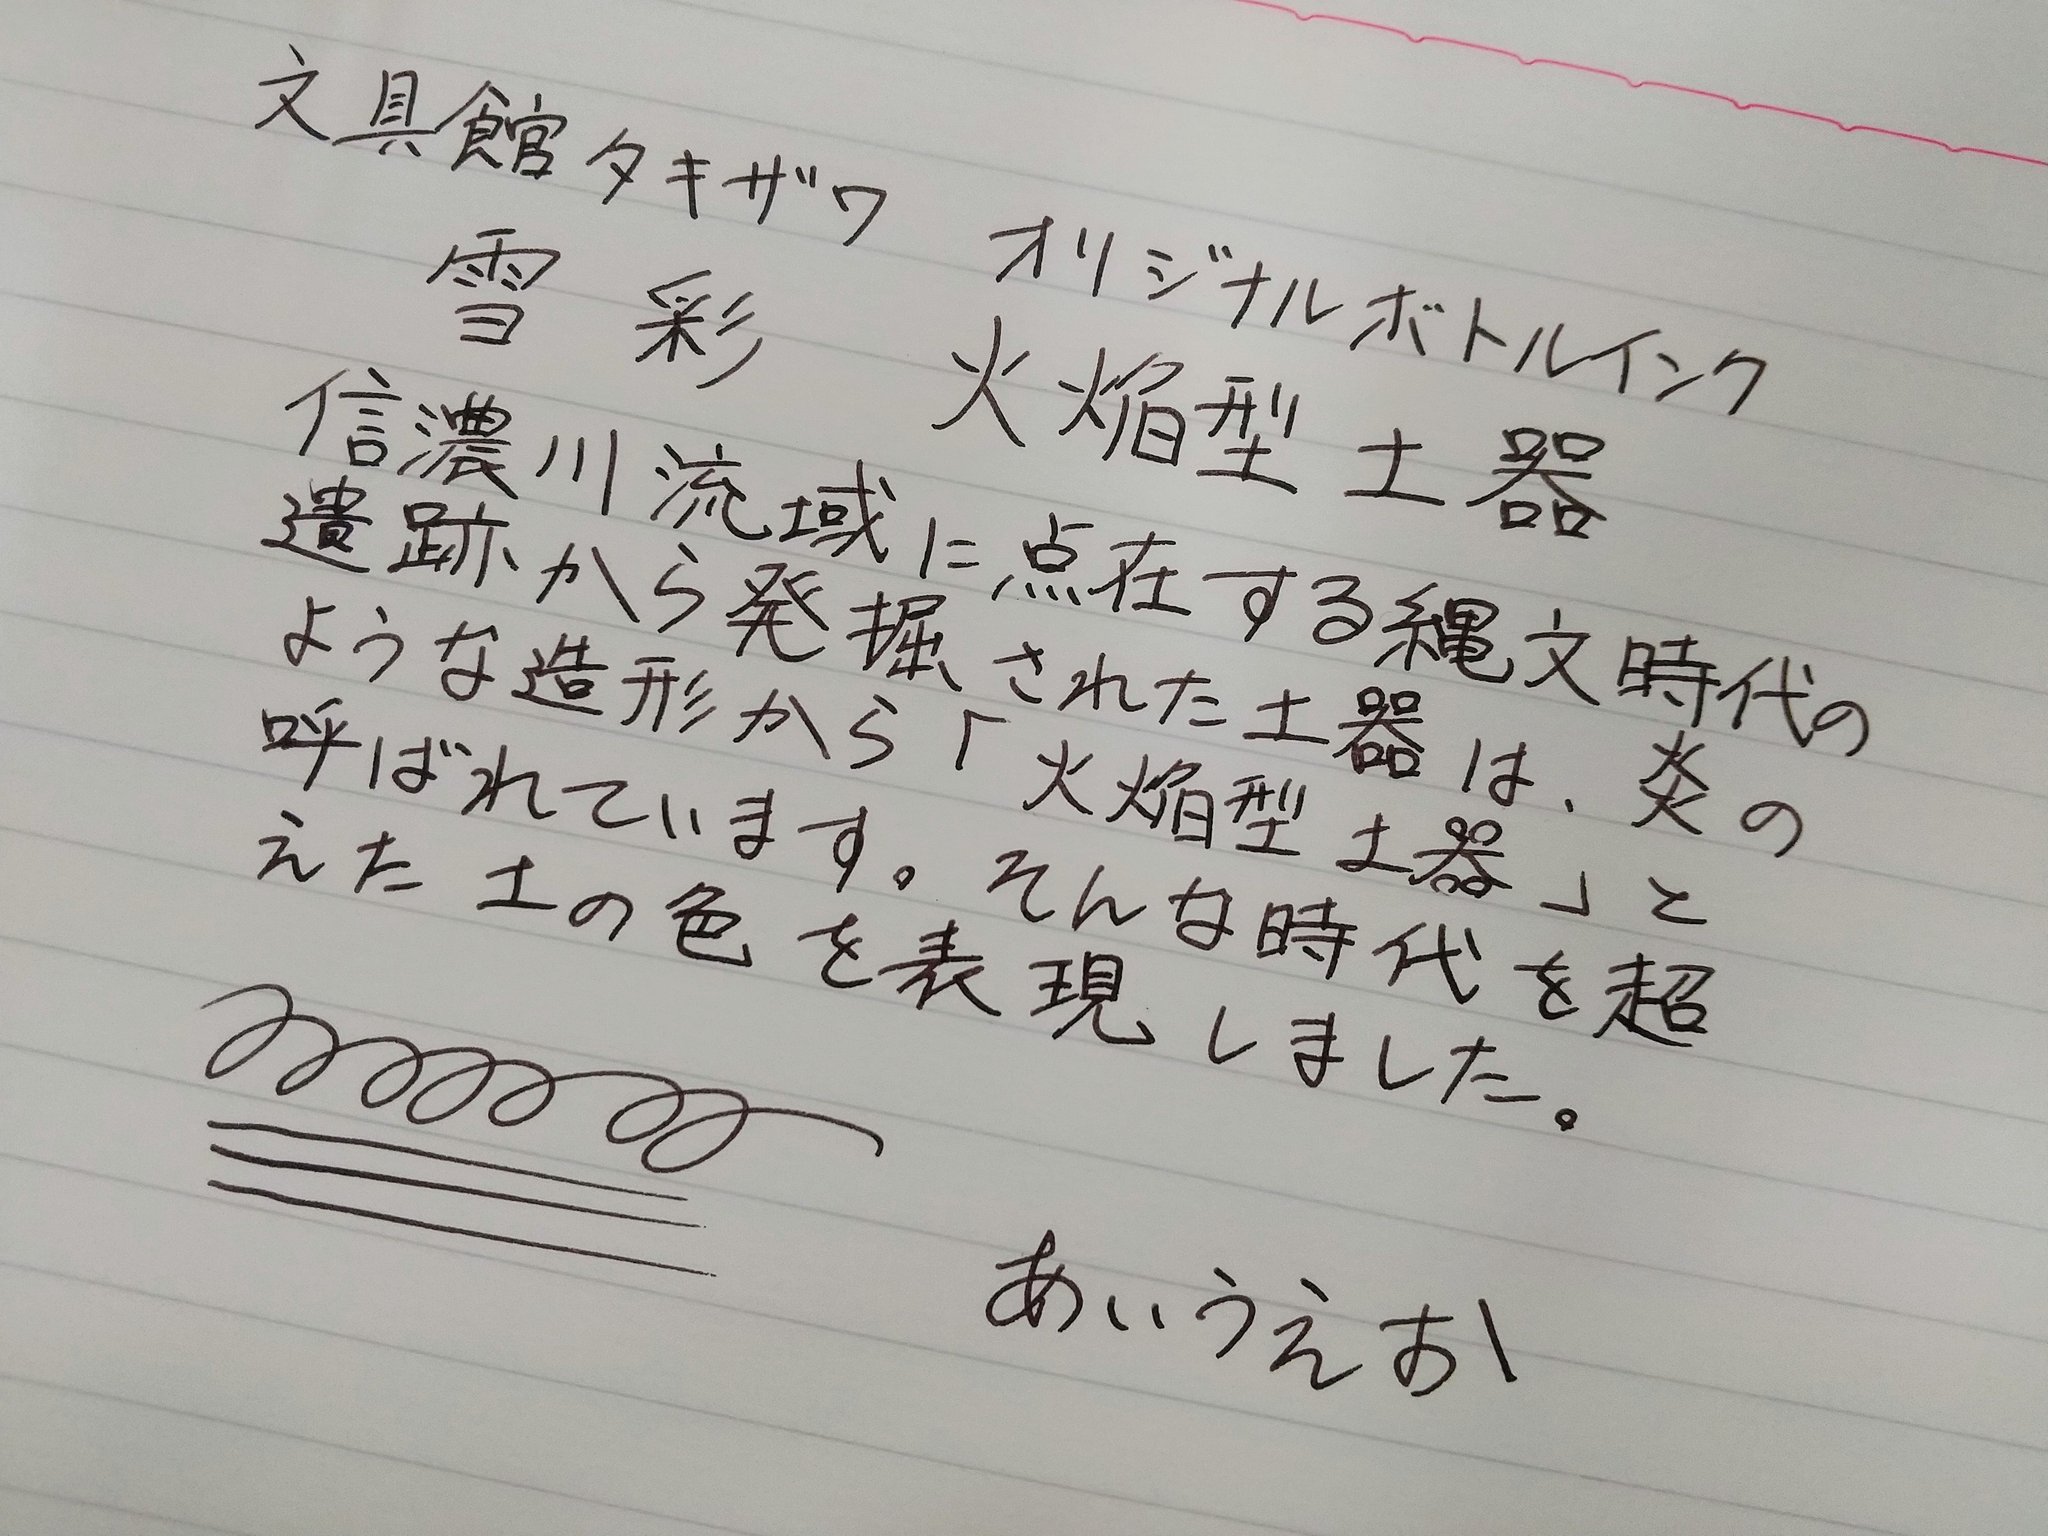 文具館タキザワ オリジナルボトルインク
雪彩 火焔型土器
信濃川流域に点在する縄文時代の
遺跡から発掘された土器は、炎の
ような造形から「火焔型土器」と
呼ばれています。そんな時代を超
えた土の色を表現しました。
あいうえお